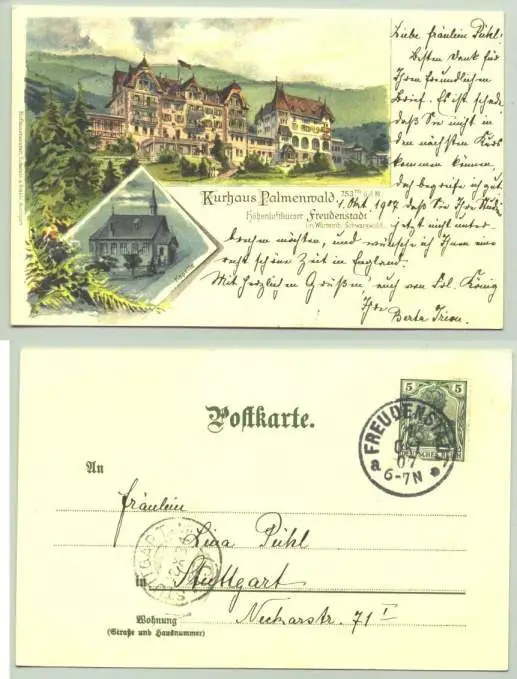 Liebe Fräulein Pühl!
Besten Dank für
Ihren freundlichen
Brief. Es ist schade
daß Sie nicht in
den nächsten Kurs
kommen können
das begreife ich gut
Kurhaus Palmenwald 753 m ü.d.M.
Höhenluftkurort "Freudenstadt"
im Württemb. Schwarzwald.
1. Okt 1907
daß Sie Ihre
jetzt nicht unter-
brechen möchten, und wünsche ich Ihnen eine
recht schöne Zeit in England.
Mit herzlichen Grüßen auch von Frl. König
Ihre
Berta
Kapelle
Postkarte.
FREUDENSTADT
1
OKT
07
a 6-7N *
5 5
DEUTSCHES REICH
An
Fräulein
Lina Pühl
in Stuttgart
STUTTGART
Wohnung
(Straße und Hausnummer)
Neckarstr. 71 I